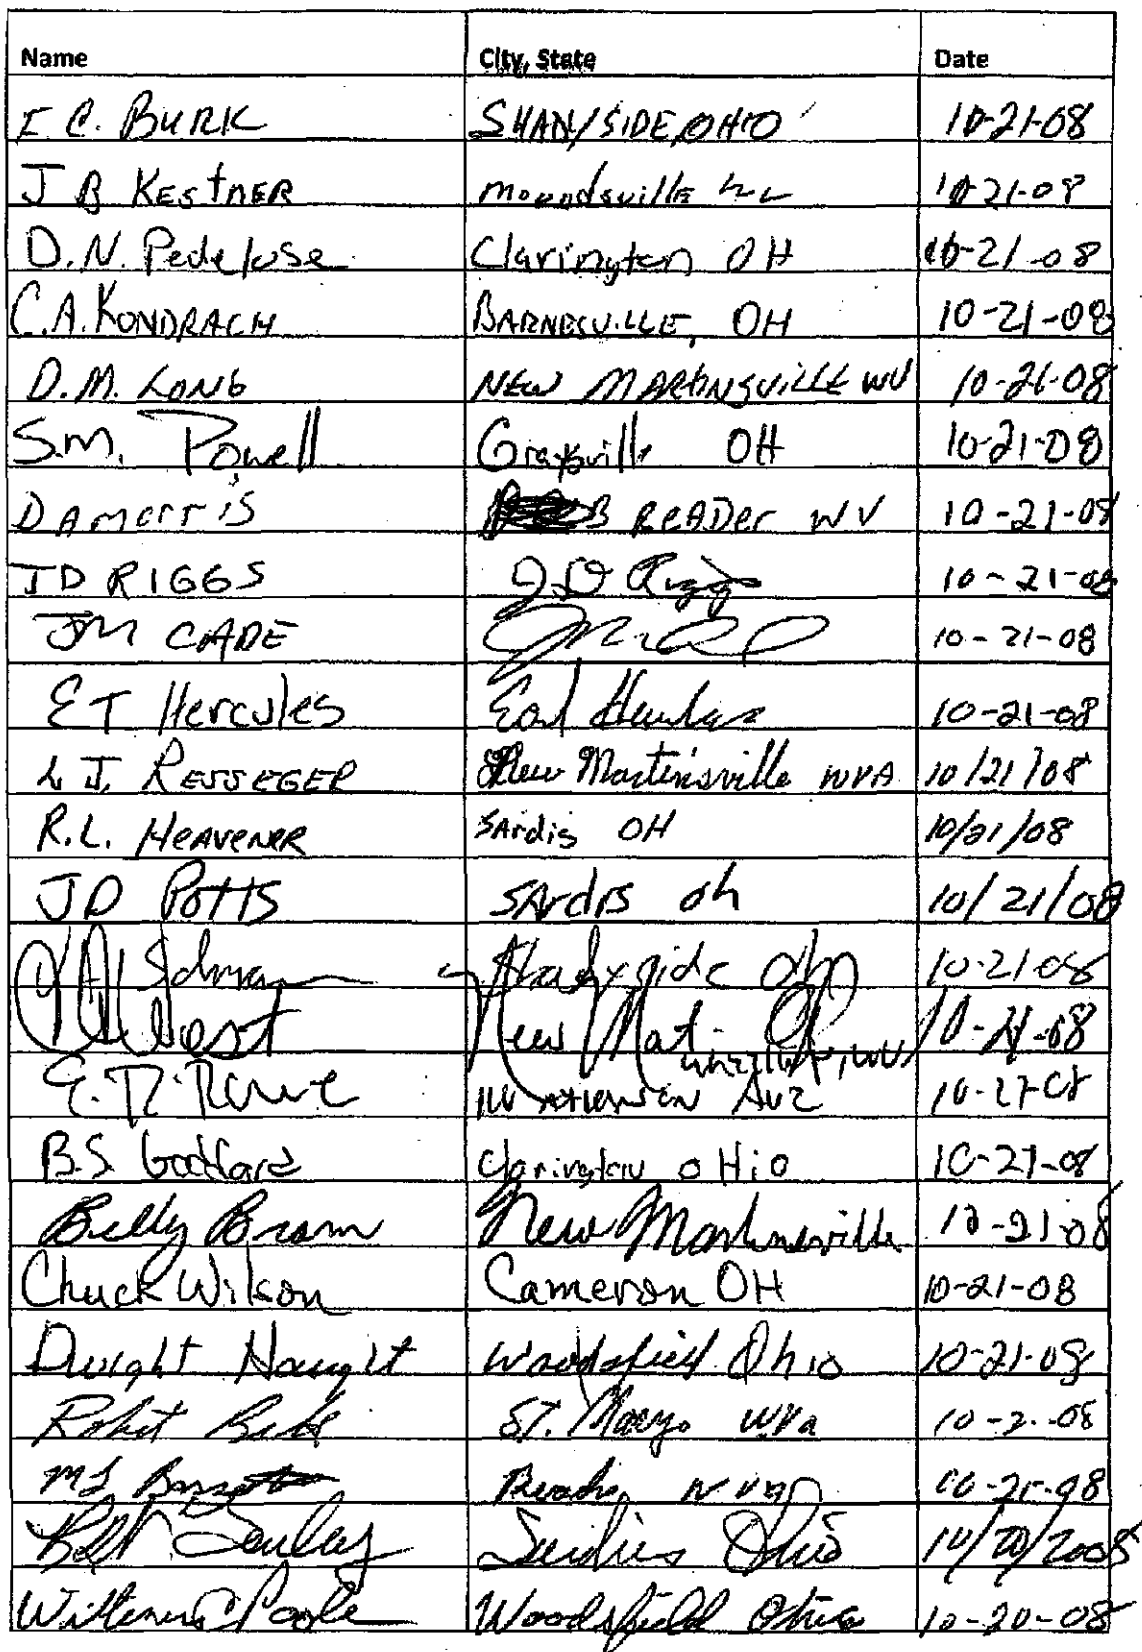 Name City, State Date
I C. BURK SHADYSIDE, OHIO 10-21-08
J B KESTNER Moundsville 10-21-08
D.N. Pedelose Clarington OH 10-21-08
C.A. KONDRACH BARNESVILLE, OH 10-21-08
D.M. LONG NEW MARTINSVILLE WV 10-21-08
S.M. Powell Graysville OH 10-21-08
D A Morris READER WV 10-21-08
JD RIGGS J D Riggs 10-21-08
JM CADE 10-21-08
ET Hercules Earl Hercules 10-21-08
L J. RESSEGER New Martinsville WVA 10/21/08
R.L. HEAVENER SArdis OH 10/21/08
JD Potts SArdis oh 10/21/08
Shadyside 10-21-08
West New Mart 10-21-08
E. R. Rowe Ave
B.S. Goddard Clarington OHiO
Billy Brown New Martinsville 10-21-08
Chuck Wilson Cameron OH 10-21-08
Dwight Haught Woodsfield Ohio 10-21-08
Robert ST. Marys WVa
Ohio
Poole Woodsfield Ohio 10-20-08